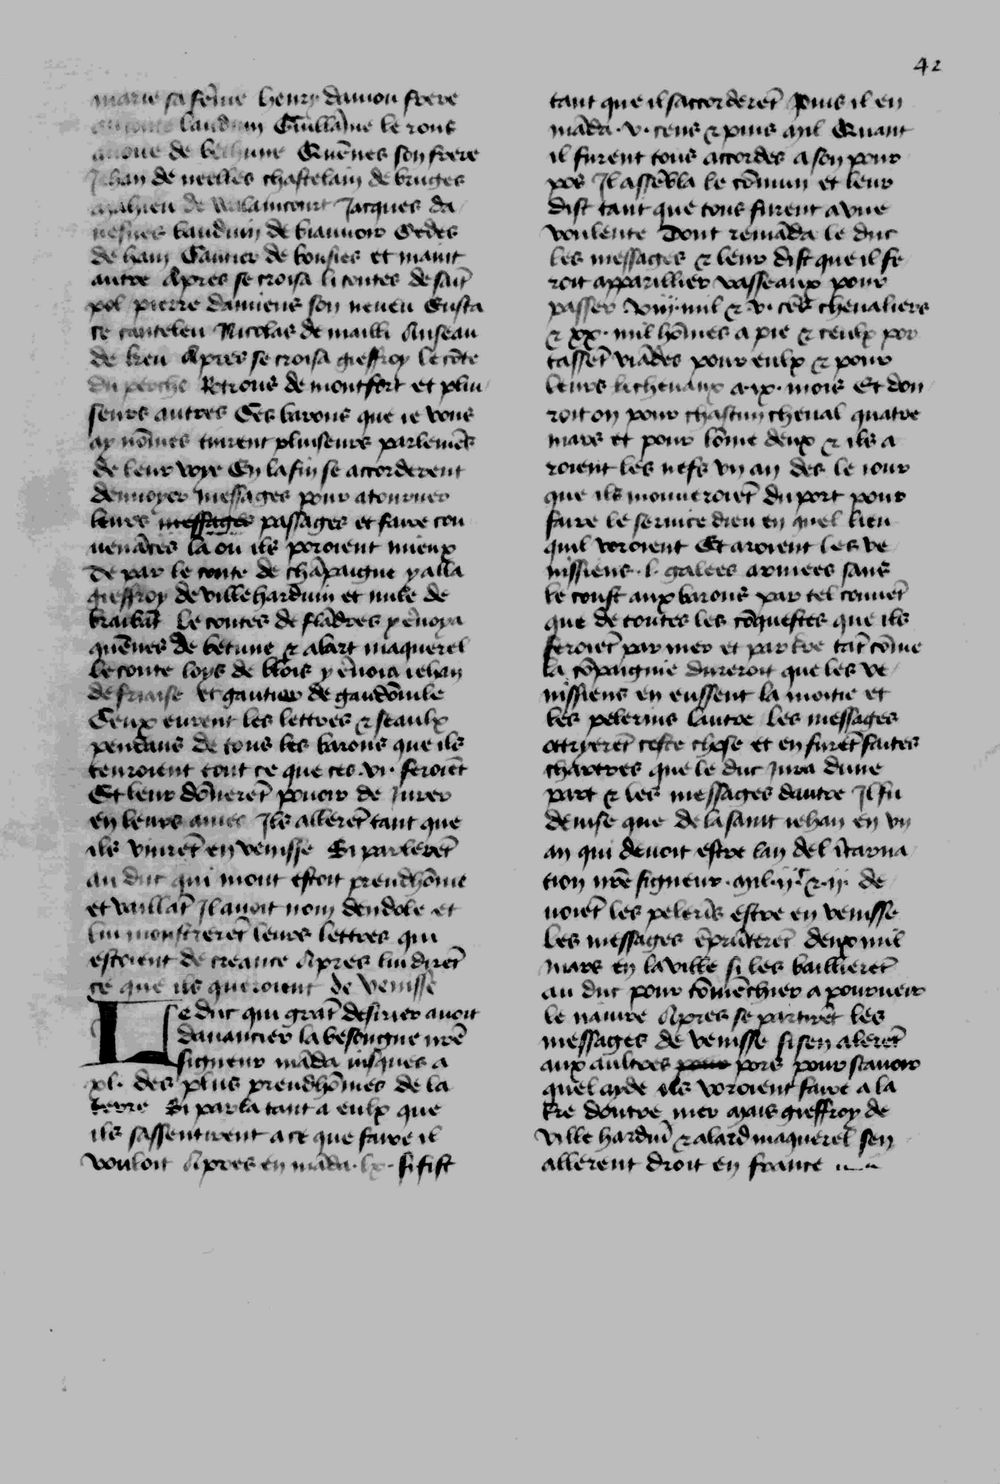 42
marie sa fēme henry daniou frere
lauduin Guillāme le rous
auoue de bethune Quēnes son frere
Jehan de neelles chastelain de bruges
mahieu de walaincourt Jacques da
uesnes bauduin de biauuoir Gedes
de ham Gautier de bousies et maint
autre Apres se croisa li contes de sait̄
pol pierre damiens son neueu Eusta
ce canteleu Nicolas de mailli Anseau
de keu Apres se croisa gieffroy le cōte
du perche Retrous de montfort et pluı
seurs autres Ces barons que ie vous
ay nōmes tinrent pluiseurs parlemēs
de leur voye En la fin se accorderent
denuoyer messages pour atourner
leurs messages passages et faire con
uenāces la ou ils poroient mieux
De par le conte de chāpaigne y alla
gieffroy de villeharduin et mile de
braibāt Le contes de flādres y ēuoya
quēnes de betune & alart maquerel
Le conte loys de blois y ēuoia iehan
de friaise et gautier de gaudōuile
Ceux eurent les lettres & seaulx
pendans de tous les barons que ils
tenroient tout ce que ces .vi. feroiēt
Et leur dōneret̄ pouoir de Jurer
en leurs ames Ils alleret̄ tant que
ils vinret̄ en venisse Si parleret̄
au duc qui mont estoit preudhōme
et vaillāt Il auoit nom dendole et
lui monstreret̄ leurs lettres qui
estoient de creance Apres lui diret̄
ce que ils queroient de venisse
Le duc qui grāt desirier auoit
dauancier la besoingne nr̄e
signeur māda iusques a
xl. des plus preudhōmes de la
terre Si parla tant a eulx que
ils sassentirent a ce que faire il
vouloit Apres en māda .lx. si fist
tant que il saccorderet̄ Puis il en
māda .v. cens & puis mil Quant
il furent tous accordes a son pour
pos Il assēbla le cōmun et leur
dist tant que tous furent a vne
voulente Dont remāda le duc
les messages & leur dist que il fe
roit apparillier vasseaux pour
passer .viiij. mil & .v. cēs cheualiers
& .xx. mil hōmes a pie & ceulx por
tasset̄ viādes pour eulx & pour
leurs licheuaux a .ix. mois Et don
roit on pour chascun cheual quatre
mars et pour lōme deux & ils a
roient les nefs vn an des le iour
que ils mouueroiet̄ du port pour
faire le seruice dieu en quel lieu
quil voroient Et aroient les ve
nissiens .l. galees armees sans
le coust aux barons par tel couuet̄
que de toutes les cōquestes que ils
feroiet̄ par mer et par t̄re tāt cōme
la cōpaignie dureroit que les ve
nissiens en eussent la moitie et
les pelerins lautre Les messages
ottryeret̄ ceste chose et en furet̄ faites
chartres que le duc Jura dune
part & les messages dautre Il fu
deuise que de la saint iehan en vn
an qui deuoit estre lan del ı̄carna
tion nr̄e signeur .mil.ijc.&.ij. de
uoiēt les pelerīs estre en venisse
Les messages ēprūteret̄ deux mil
mars en la ville si les baillieret̄
au duc pour cōmēchier a pourueir
le nauire Apres se partirēt les
messages de venisse si sen aleret̄
aux aultres pour pors pour scauoir
quel ayde ils voroient faire a la
t̄re doutre mer Mais gieffroy de
ville harduī & alard maquerel sen
allerent droit en france